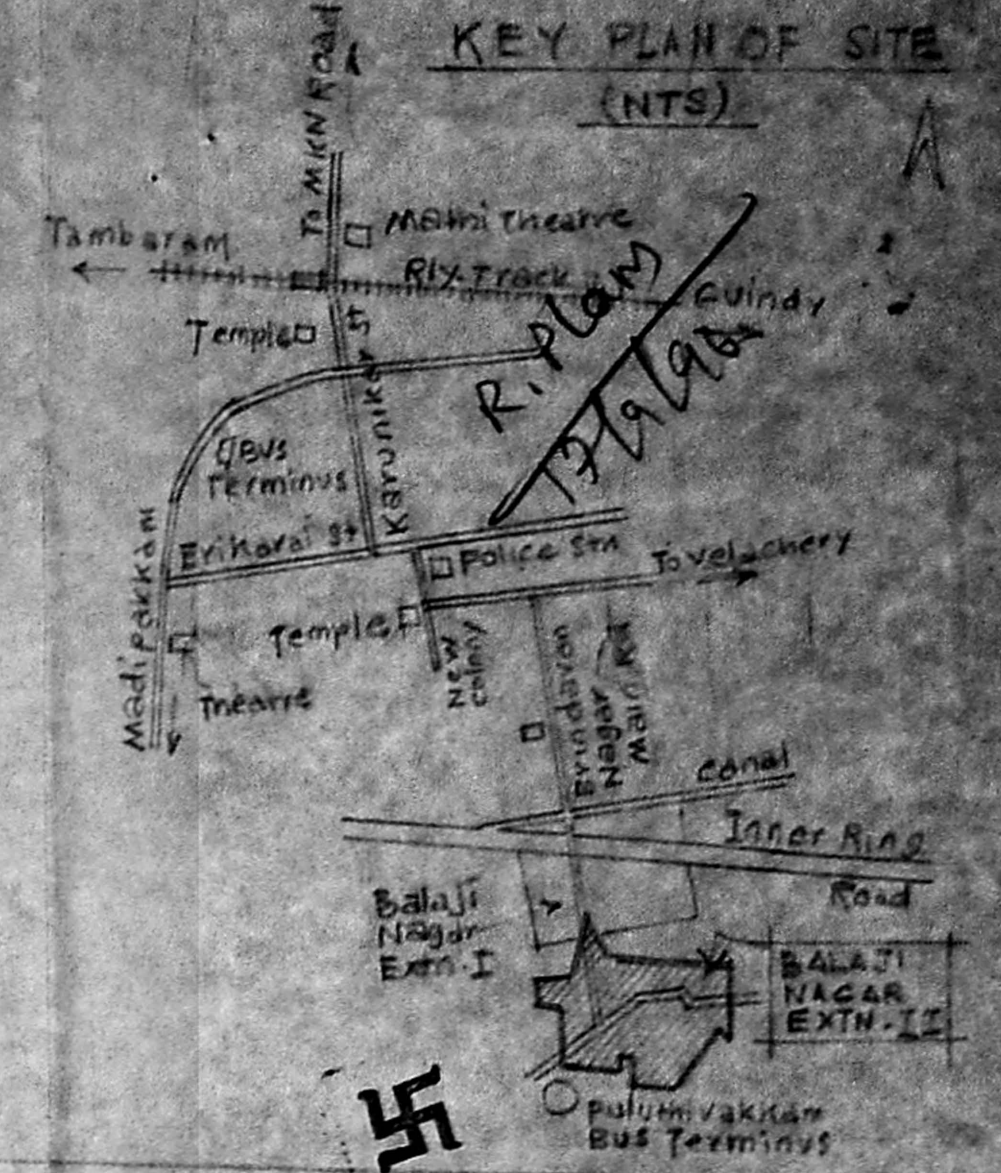 KEY PLAN OF SITE
(NTS)
To MKN Road
Mathi Thearre
Tambaram
Rly-Track
Guindy
Temple
R. Plan
Karunikar St
17/9/92
BUS
Terminus
Erikarai St
Police Stn
To Velachery
Madipakkam
Temple
New
Colony
Brindavan
Nagar
Main Rd
Thearre
Canal
Inner Ring
Road
Balaji
Nagar
Extn. I
BALAJI
NAGAR
EXTN. II
Puluthivakkam
Bus Terminus